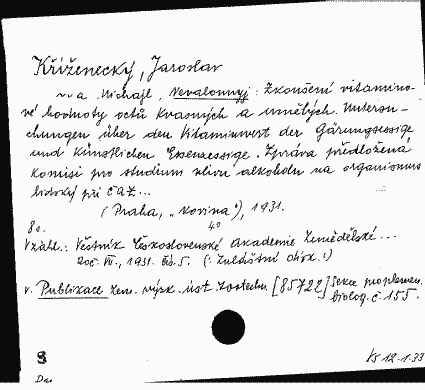 Kříženecký, Jaroslav
a Michajl, Nevalonnyj: Zkoušení vitamino-
vé hodnoty octů kvasných a umělých. Untersu-
chungen über den Vitaminwert der Gärungsessige
und künstlichen Essenzessige. Zpráva předložená
komisi pro studium vlivu alkoholu na organismus
lidský při ČAZ...
(Praha, „Novina"), 1931.
8°. 4°
V záhl.: Věstník Československé Akademie Zemědělské...
Roč. VII., 1931. čís. 5. (: Zvláštní otisk :)
v. Publikace zem. výzk. úst. zootechn. [85722] Sekce pro plemen.
biolog. č. 155.
8 12.1.33